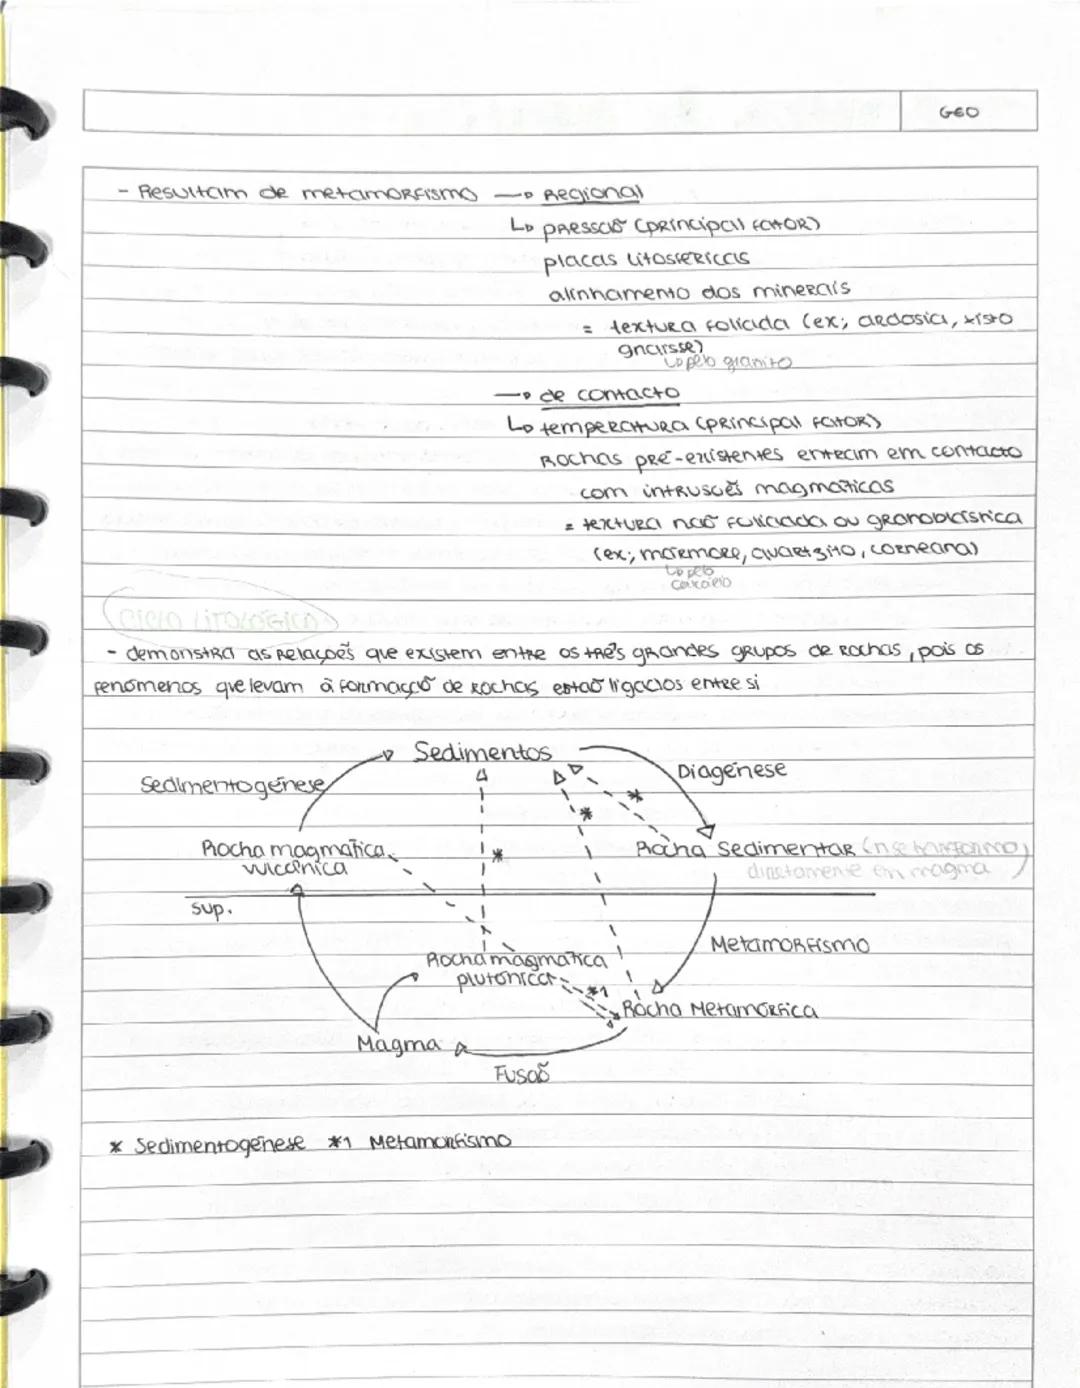 GEO
- Resultam de metamorfismo → Regional
↳ pressão (principal fator)
placas litosféricas
alinhamento dos minerais
= textura foliada (ex; ardósia, xisto
gnaisse)
↳ pelo granito
→ de contacto
↳ temperatura (principal fator)
Rochas pré-existentes entram em contacto
com intrusões magmáticas
= textura não foliada ou granoblástica
(ex; mármore, quartzito, corneana)
↳ pelo
calcário
Ciclo Litológico
- demonstra as relações que existem entre os três grandes grupos de rochas, pois os
fenómenos que levam à formação de rochas estão ligados entre si
Sedimentos
Diagénese
Sedimentogénese
*
*
Rocha magmática
vulcânica
*
Rocha Sedimentar (n se transforma
diretamente em magma)
Sup.
Metamorfismo
Rocha magmática
plutónica
*1
Rocha Metamórfica
Magma
Fusão
* Sedimentogénese *1 Metamorfismo